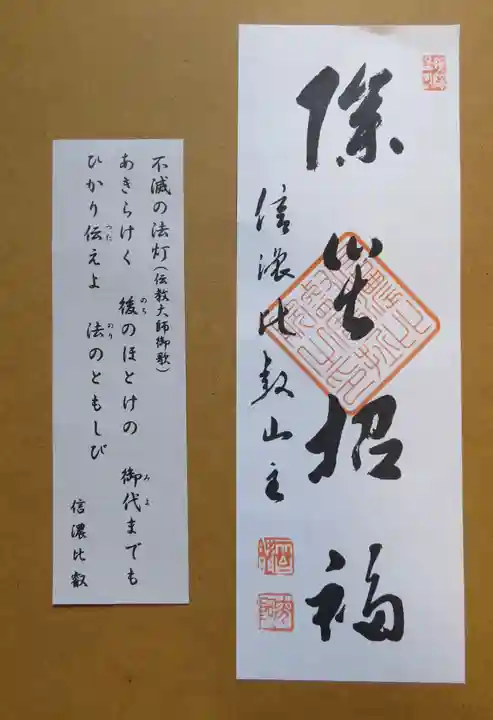 除災招福
信濃比叡山主
不滅の法灯(伝教大師御歌)
あきらけく 後のほとけの 御代までも
のち みよ
ひかり伝えよ 法のともしび
つた のり
信濃比叡